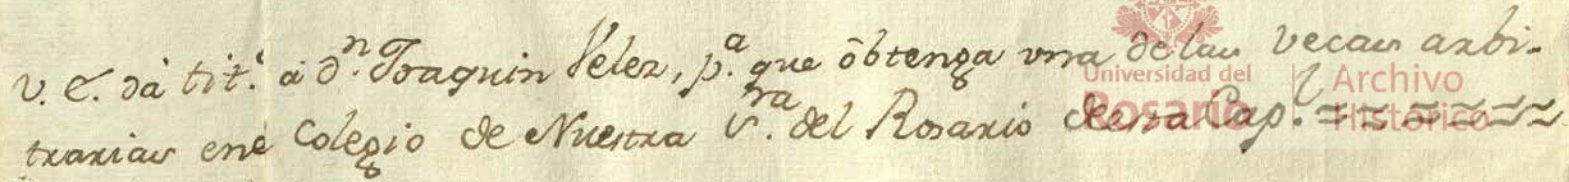 V. E. dà tit.º à D.ⁿ Joaquin Velez, p.ª que obtenga vna de las Vecas arbi-
trarias en e Colegio de Nuestra S.ʳᵃ del Rosario de esta Cap.ˡ = = = = = =
Universidad del Rosario | Archivo Histórico